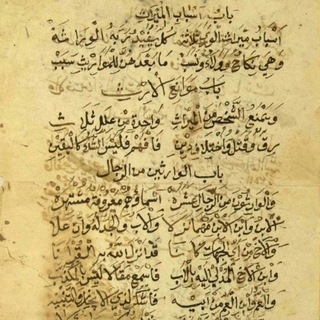 باب اسباب الميراث
اسباب ميراث الورى ثلاثة كل يفيد ربه الوراثة
وهي نكاح وولاء ونسب ما بعدهن للمواريث سبب
باب موانع الارث
ويمنع الشخص من الميراث واحدة من علل ثلاث
رق وقتل واختلاف دين فافهم فليس الشك كاليقين
باب الوارثين من الرجال
والوارثون من الرجال عشرة اسماؤهم معروفة مشتهرة
الابن وابن الابن مهما نزلا والاب والجد له وان علا
والاخ من اي الجهات كانا قد انزل الله به القرانا
وابن الاخ المدلي اليه بالاب فاسمع مقالا ليس بالمكذب
والعم وابن العم من ابيه فاشكر لذي الايجاز والتنبيه